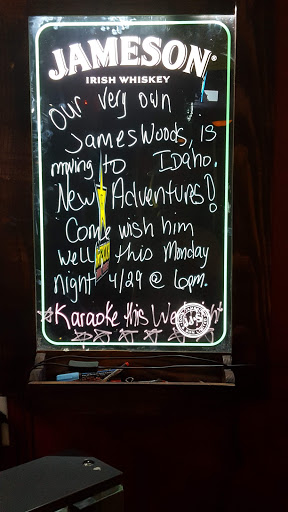 JAMESON®
IRISH WHISKEY
our very own
James Woods, is
moving to Idaho.
New Adventures!
Come wish him
well this Monday
night 4/29 @ 6pm.
Karaoke this